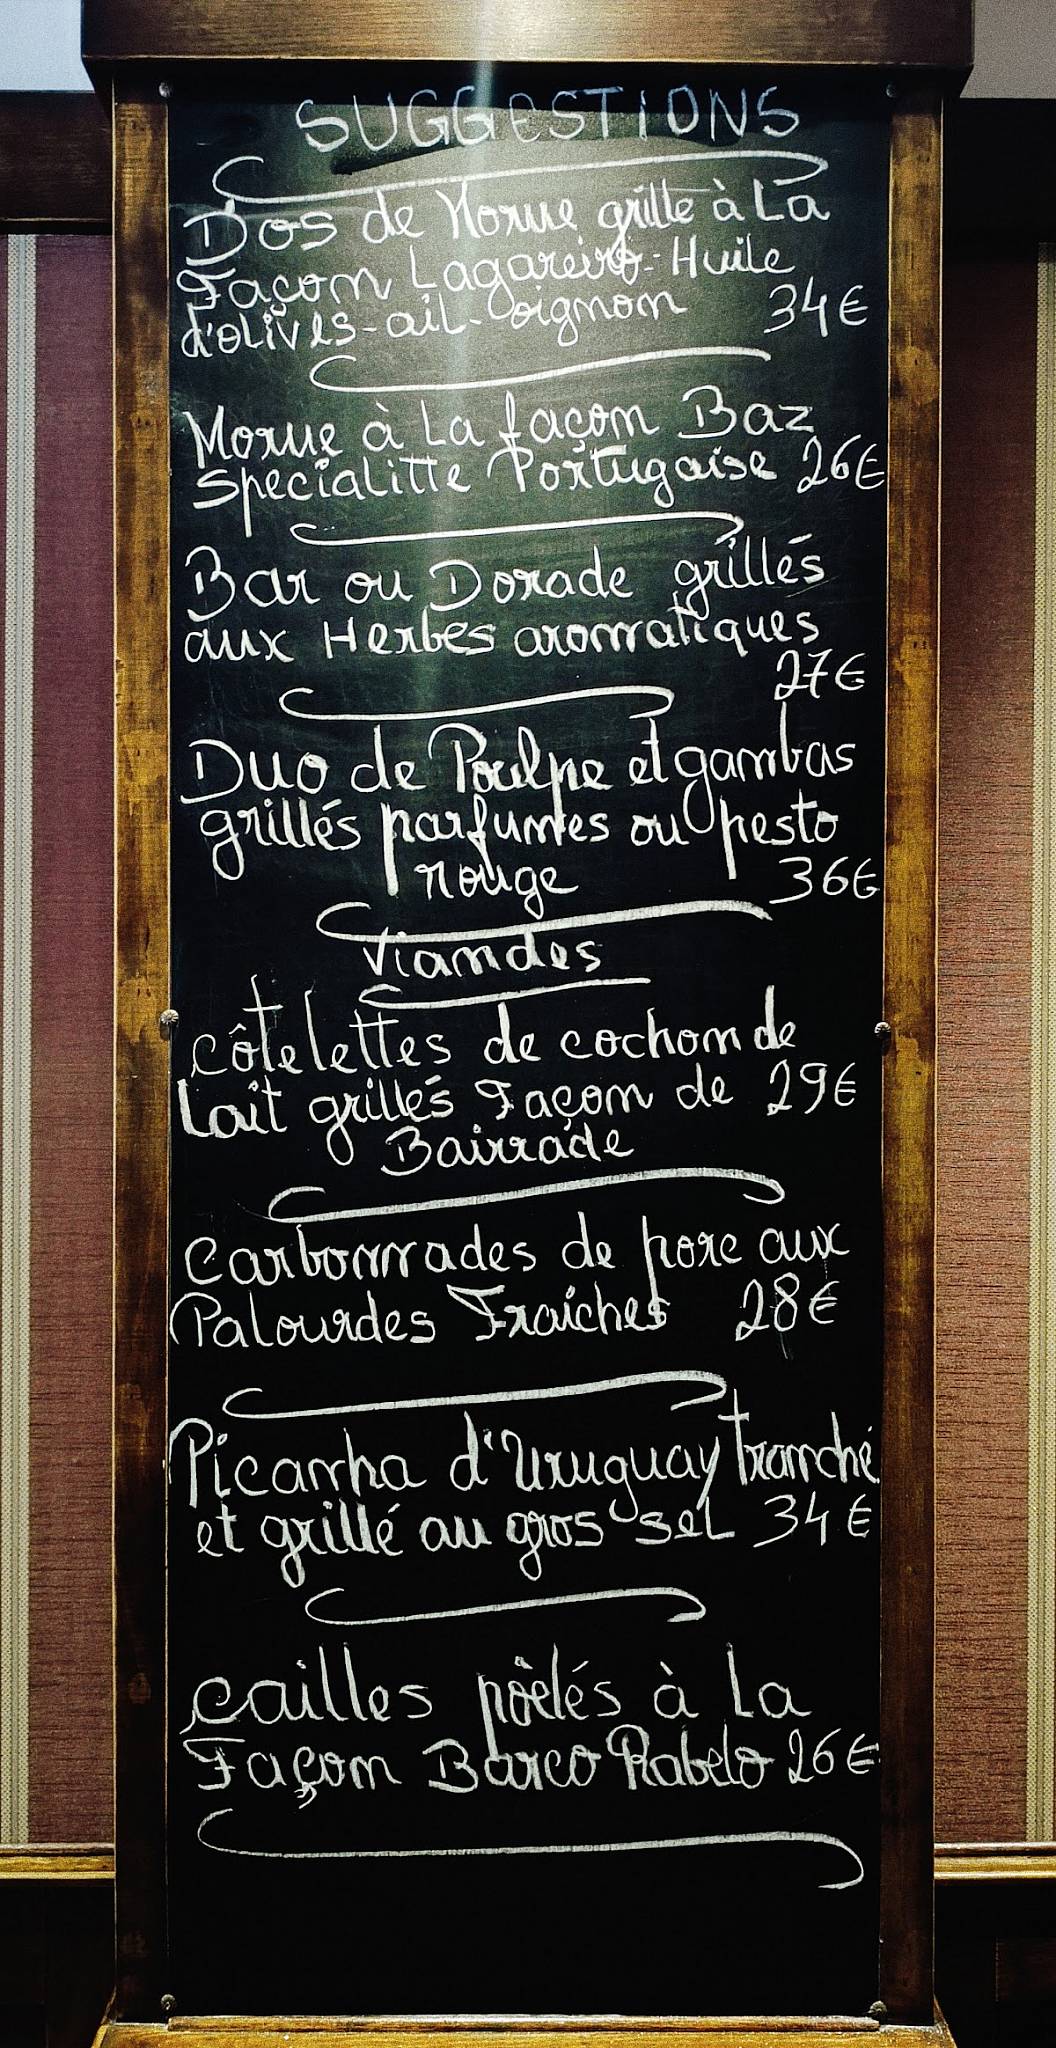 SUGGESTIONS
Dos de Morue grille à La
Façon Lagareiro-Huile
d'olives-ail-oignon 34€
Morue à La façon Baz
specialitte Portugaise 26€
Bar ou Dorade grillés
aux Herbes aromatiques
27€
Duo de Poulpe et gambas
grillés parfumes ou pesto
rouge 36€
Viandes
côtelettes de cochon de
Lait grillés Façon de 29€
Bairrade
Carbonnades de porc aux
Palourdes Fraiches 28€
Picanha d'Uruguay tranché
et grillé au gros sel 34€
cailles pôêlés à La
Façon Barco Rabelo 26€